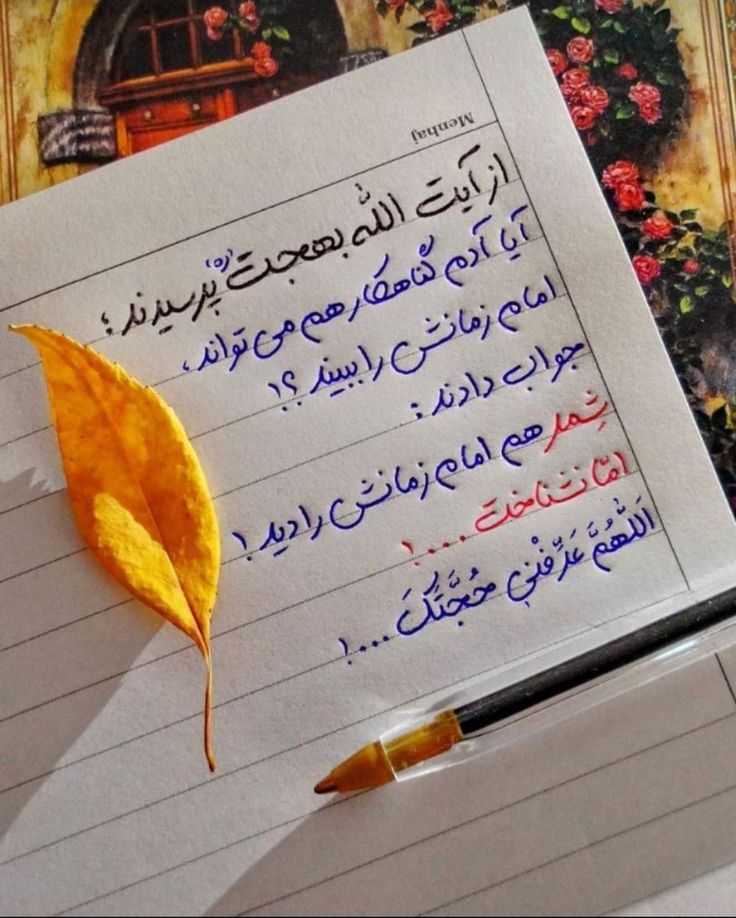 Menhaj
از آیت الله بهجت (ره) پرسیدند؛
آیا آدم گناهکار هم می تواند،
امام زمانش را ببیند؟!
جواب دادند:
شِمر هم امام زمانش را دید!
امّا نشناخت...!
اَللّهُمَّ عَرِّفْنی حُجَّتَکَ...!